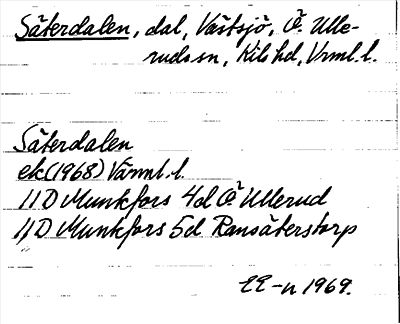 Säterdalen, dal, Västsjö, Ö. Ulle-
ruds sn, Kils hd, Vrml. l.
Säterdalen
ek (1968) Värml. l.
11D Munkfors 4d Ö Ullerud
11D Munkfors 5d Ransäterstorp
1969.